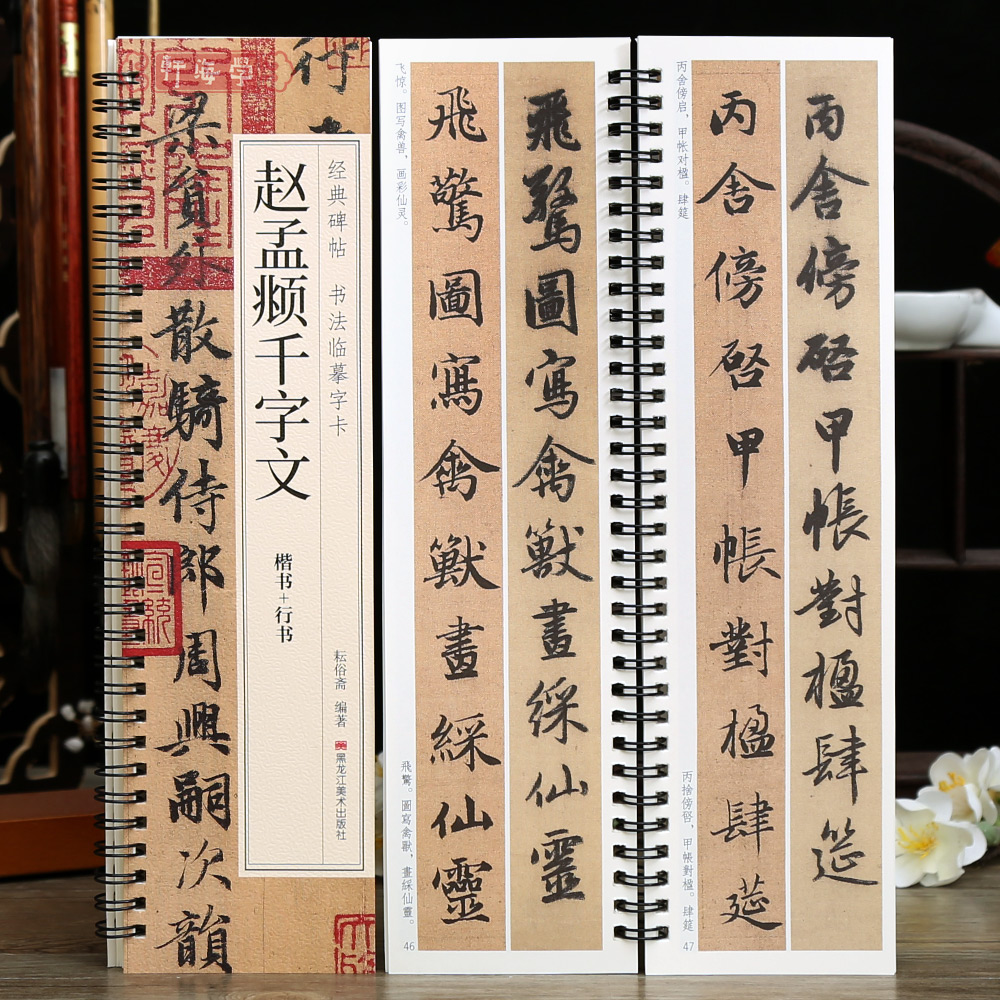 軒海學
行
梁貧外散騎侍郎周興嗣次韻
经典碑帖 书法临摹字卡
赵孟頫千字文
楷书+行书
耘俗斋 编著
黑龙江美术出版社
飞惊。图写禽兽，画彩仙灵。
飛驚圖寫禽獸畫綵仙靈
飛驚圖寫禽獸畫綵仙靈
飛驚。圖寫禽獸，畫綵仙靈。
46
丙舍傍启，甲帐对楹。肆筵
丙舍傍啓甲帳對楹肆筵
丙舍傍啓甲帳對楹肆筵
丙捨傍啓，甲帳對楹。肆筵
47